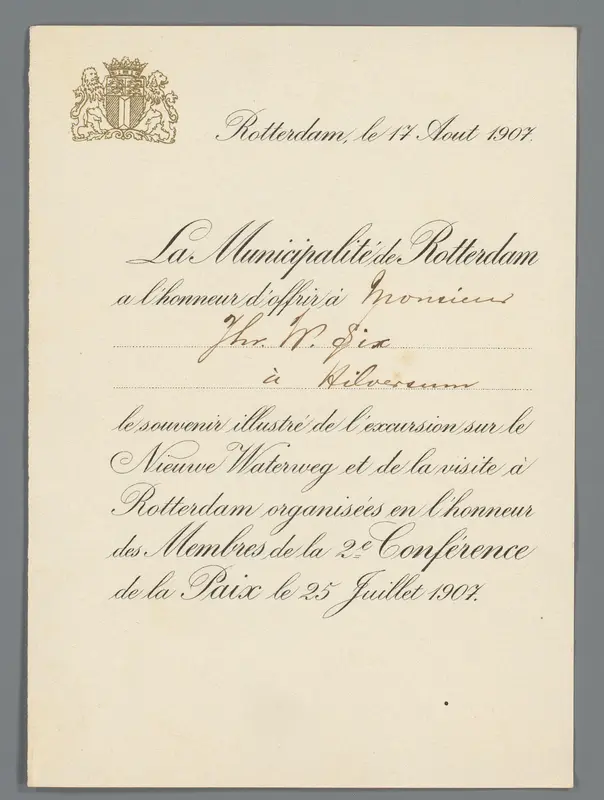 Rotterdam, le 17 Aout 1907.
La Municipalité de Rotterdam
a l'honneur d'offrir à Monsieur
Jhr. W. Six
à Hilversum
le souvenir illustré de l'excursion sur le
Nieuwe Waterweg et de la visite à
Rotterdam organisées en l'honneur
des Membres de la 2e Conférence
de la Paix le 25 Juillet 1907.